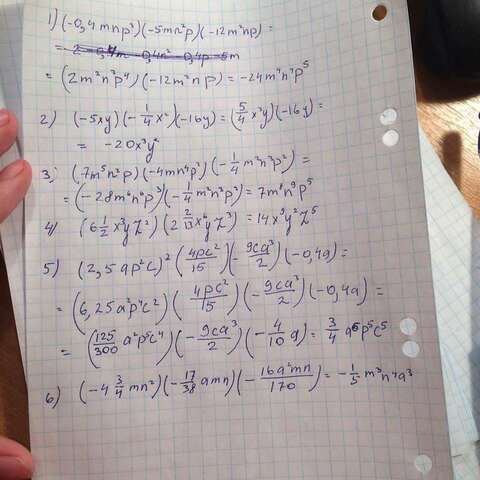 1) (-0,4mnp³)(-5mn²p)(-12m²np) =
= (2m²n³p⁴)(-12m²np) = -24m⁴n⁴p⁵
2) (-5xy)(-1/4x²)(-16y) = (5/4x³y)(-16y) =
= -20x³y²
3) (7m⁵n²p)(-4mn⁴p²)(-1/4m²n³p²) =
= (-28m⁶n⁶p³)(-1/4m²n³p²) = 7m⁸n⁹p⁵
4) (6 1/2x³yz²)(2 2/13x⁶yz³) = 14x⁹y²z⁵
5) (2,5ap²c)²(4pc²/15)(-9ca³/2)(-0,4a) =
= (6,25a²p⁴c²)(4pc²/15)(-9ca³/2)(-0,4a) =
= (125/300a²p⁵c⁴)(-9ca³/2)(-4/10a) = 3/4a⁶p⁵c⁵
6) (-4 3/4mn²)(-17/38amn)(-16a²mn/170) = -1/5m³n⁴a³